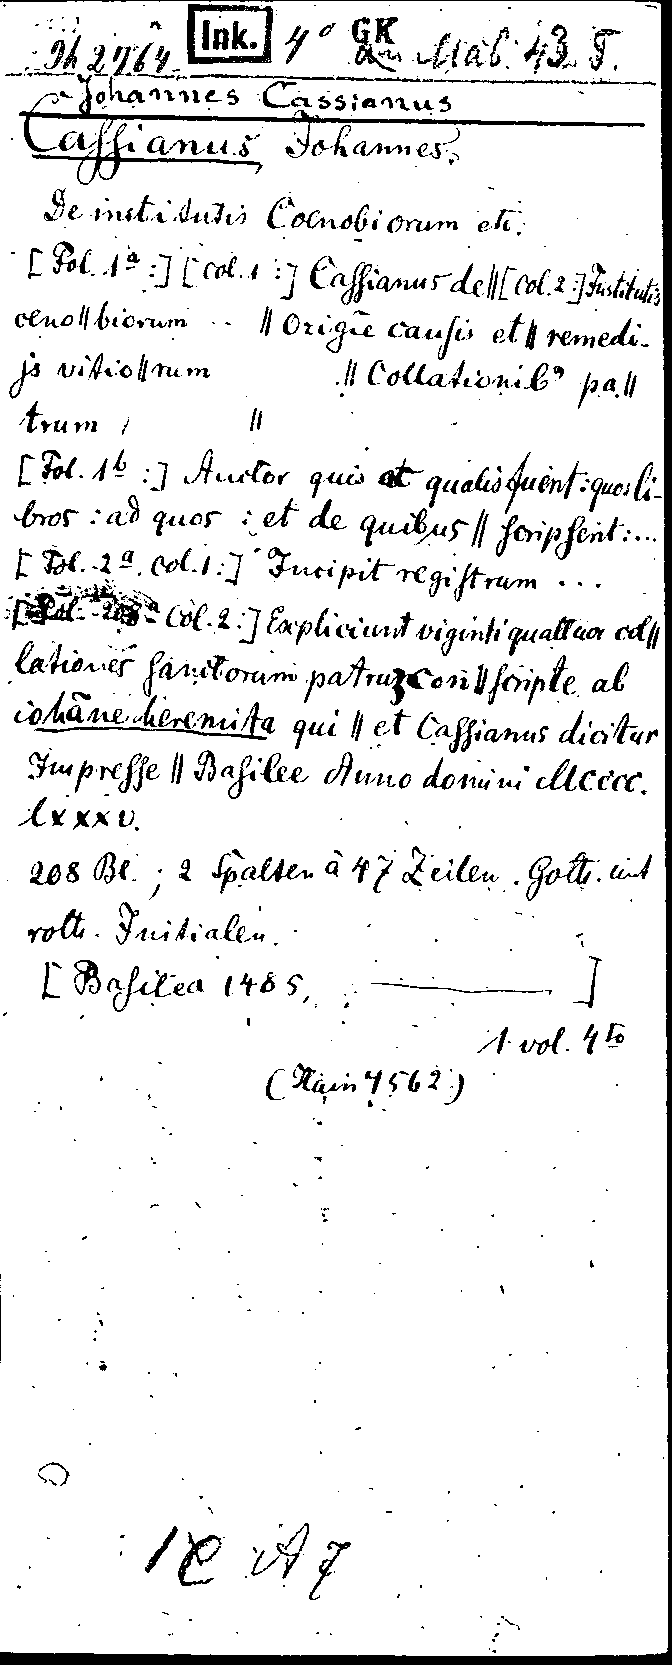 Th 2764 Ink. 4° GK Mab. 43. 5.
Johannes Cassianus
Cassianus, Johannes.
De institutis Coenobiorum etc.
[Fol. 1ª:] [col. 1:] Cassianus de || [col. 2:] Institutis
ceno||biorum .. || Origĩe causis et || remedi-
js vitio||rum .|| Collationib⁹ pa.||
trum / ||
[Fol. 1b:] Auctor quis et qualis fuerit: quos li-
bros: ad quos: et de quibus || scripserit:...
[Fol. 2ª. col. 1:] Incipit registrum ...
[Fol. 208ª Col. 2:] Expliciunt viginti quattuor col||
lationes sanctorum patruʒ con||scripte ab
iohãne heremita qui || et Cassianus dicitur
Impresse || Basilee Anno domini Mcccc.
lxxxv.
208 Bl.; 2 Spalten à 47 Zeilen. Goth. mit
roth. Initialen.
[Basilea 1485, ——— ]
1 vol. 4to
(Hain 4562)
A 7